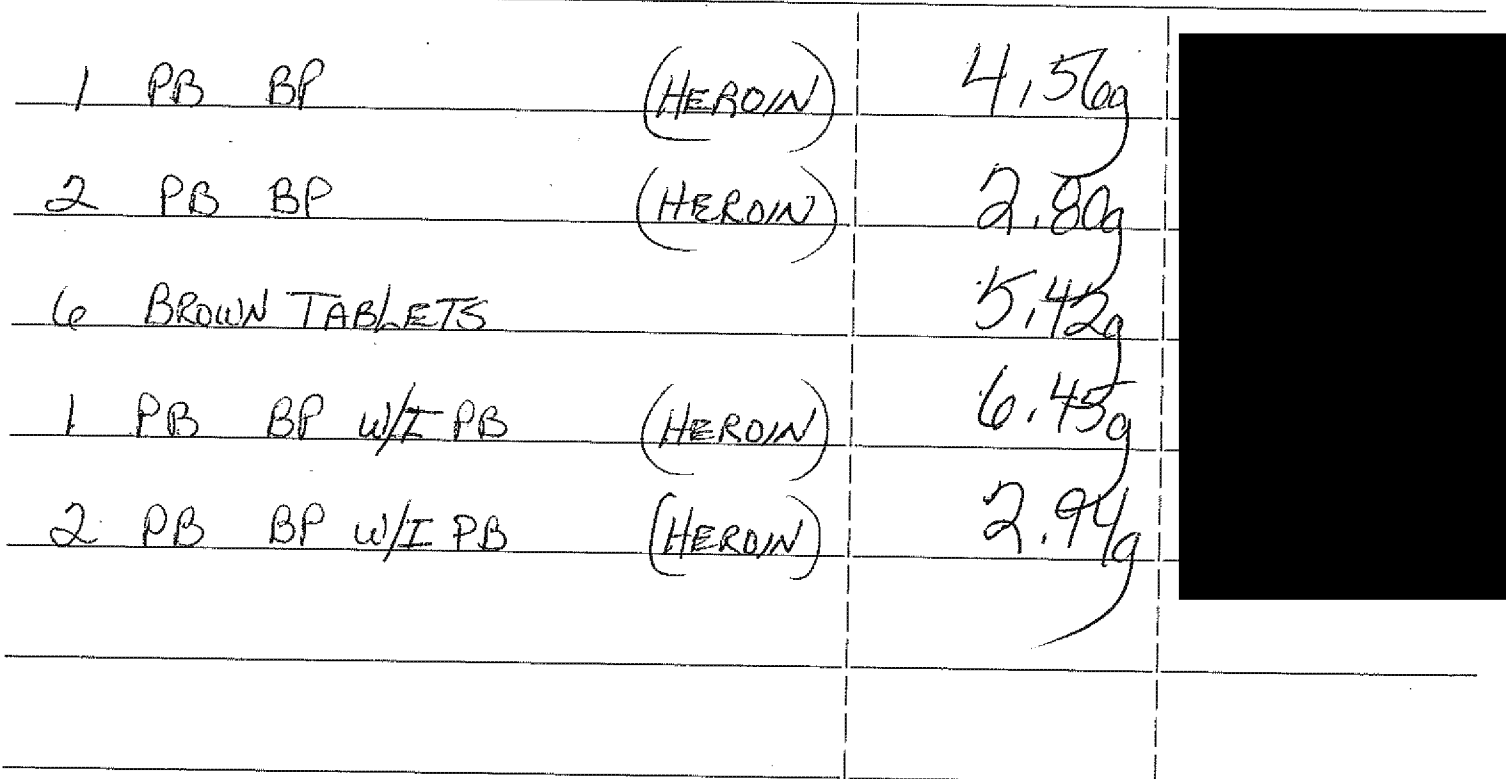 1 PB BP (HEROIN) 4.56g
2 PB BP (HEROIN) 2.80g
6 BROWN TABLETS 5.42g
1 PB BP W/I PB (HEROIN) 6.45g
2 PB BP W/I PB (HEROIN) 2.94g